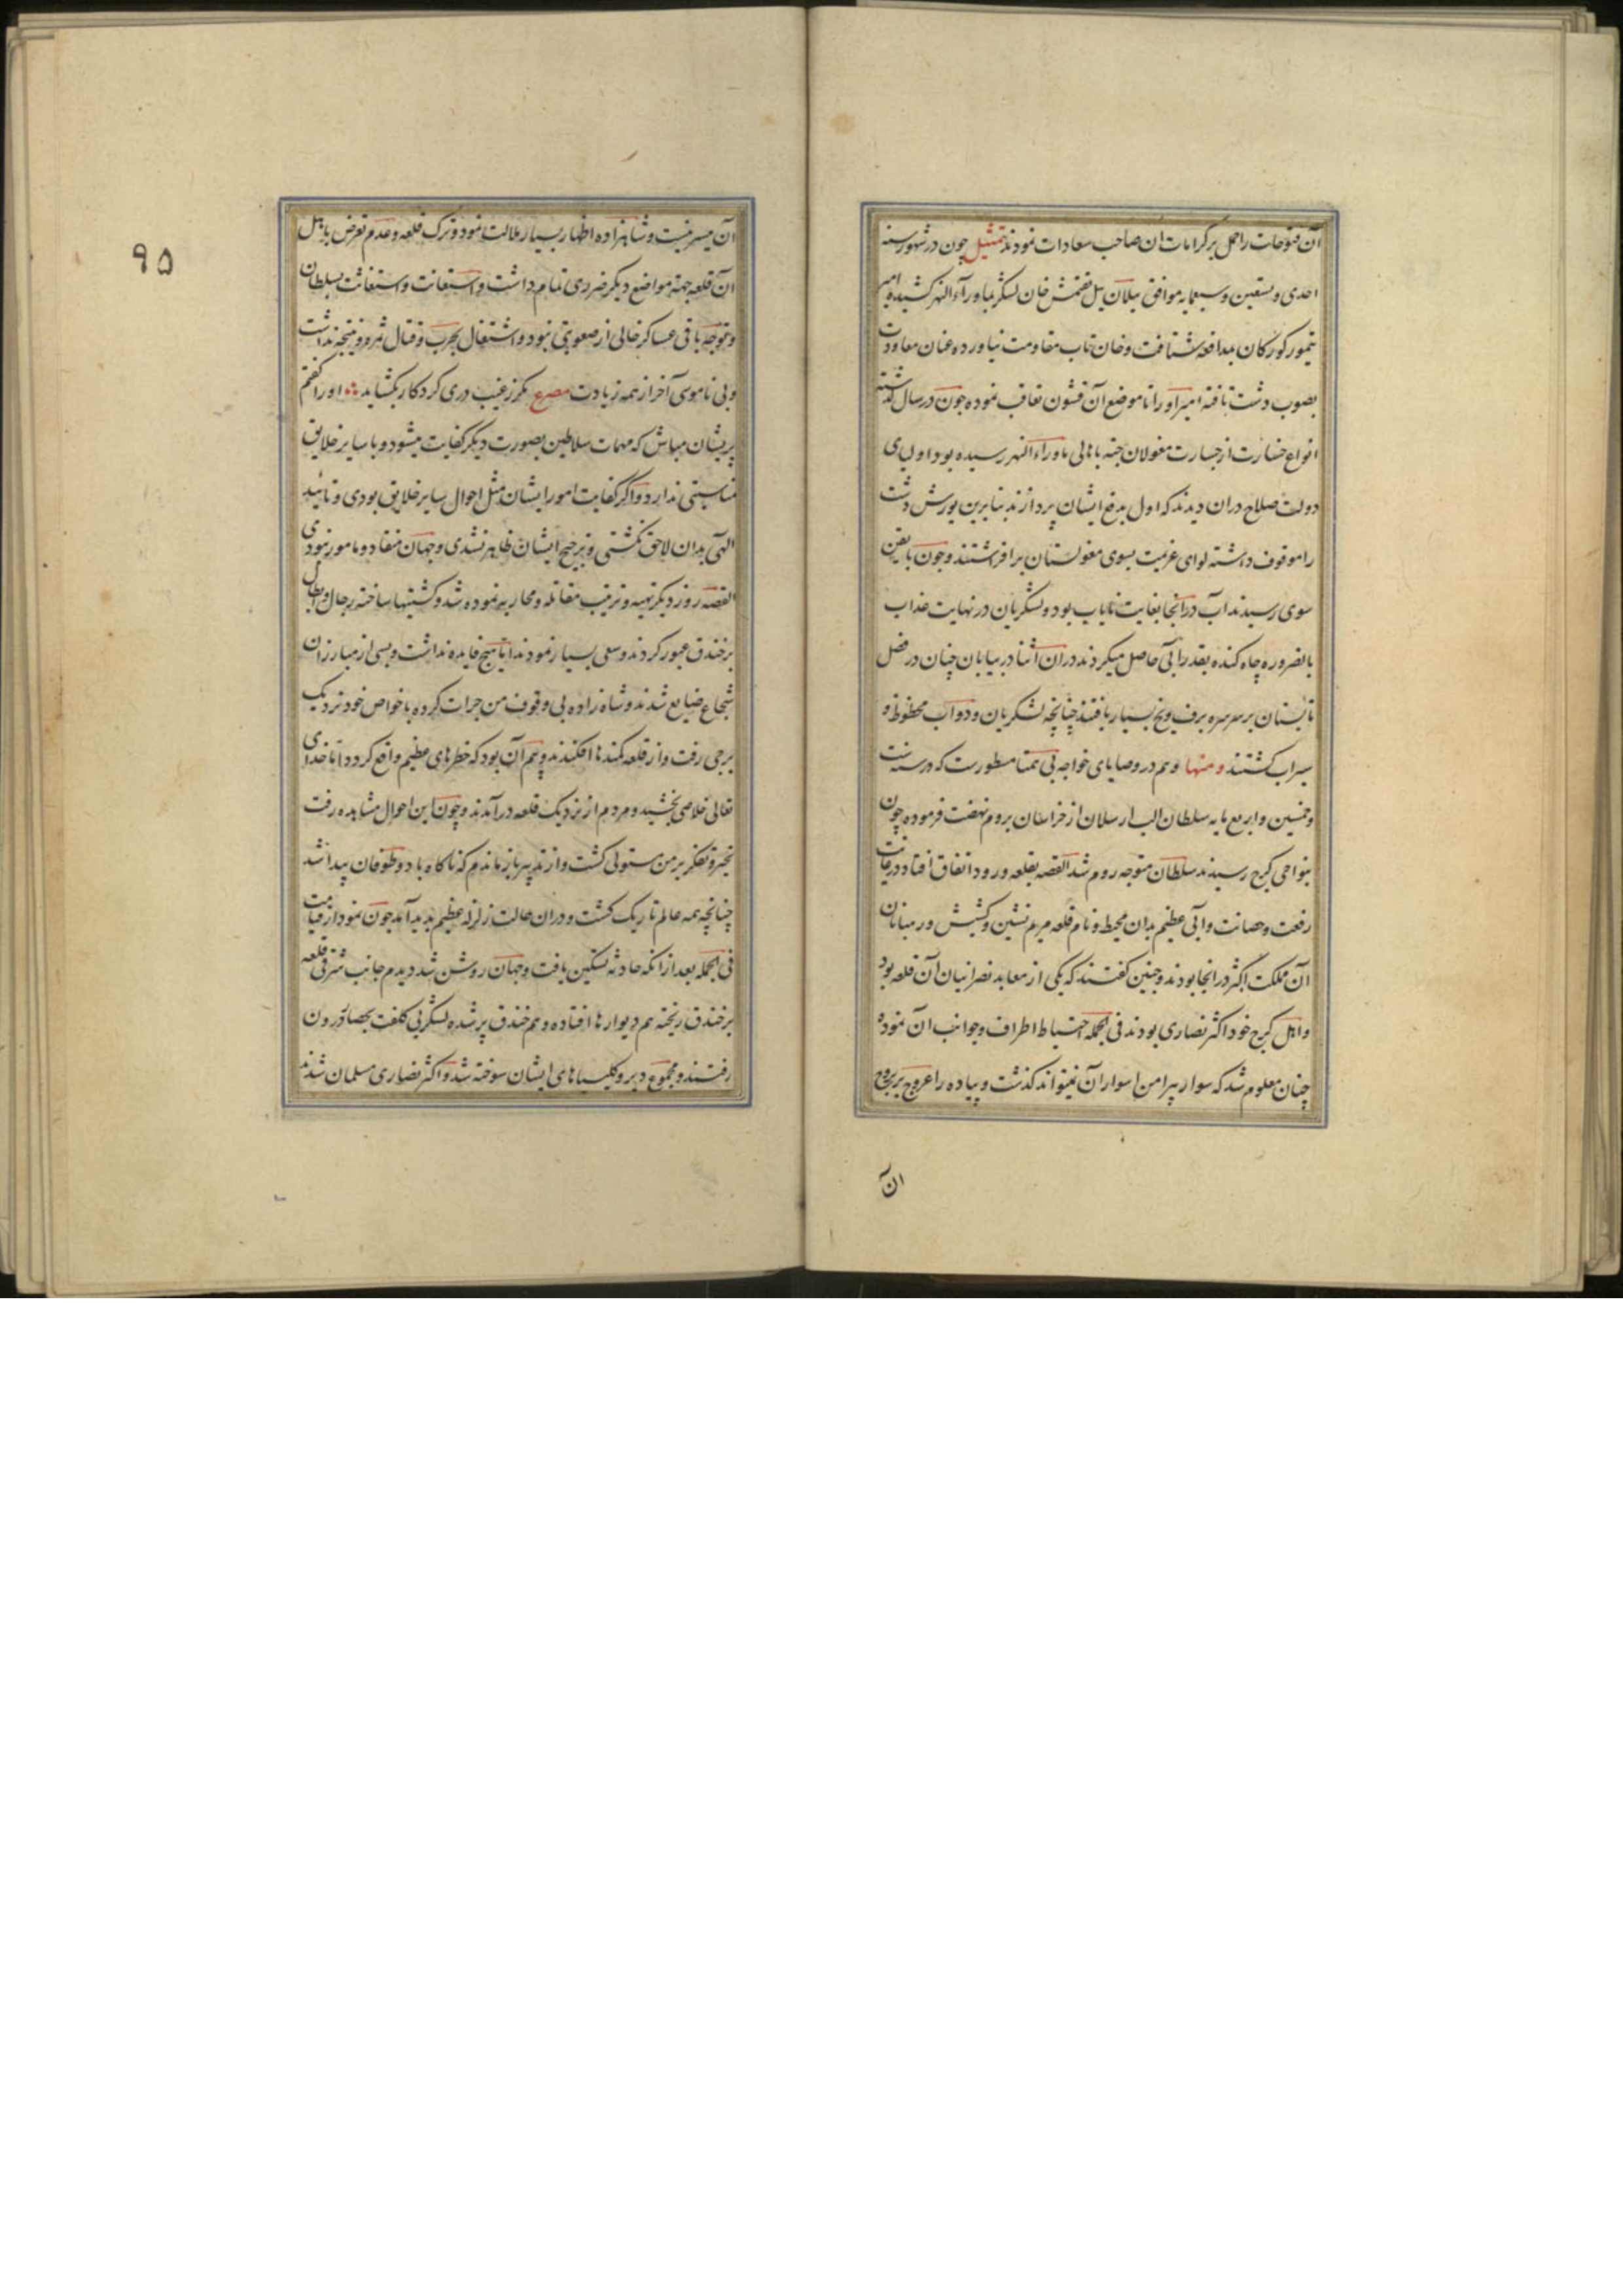 آن فتوحات را حمل بر کرامات ان صاحب سعادات نمودند تمثیل چون در شهور سنه
احدی و تسعین و سبعمایه موافق ییلان ییل تغتمش خان لشکر بماوراء النهر کشیده امیر
تیمور کورکان بمدافعه شتافت و خان تاب مقاومت نیاورده عنان معاودت
بصوب دشت تافته امیر او را تا موضع آن قشون تعاقب نموده چون در سال گذشته
انواع خسارت از جسارت مغولان جته باهالی ماوراء النهر رسیده بود اولیای
دولت صلاح دران دیدند که اول بدفع ایشان پردازند بنابرین یورش دشت
را موقوف داشته لوای عزیمت بسوی مغولستان برافراشتند و چون
سوی رسیدند آب درانجا بغایت نایاب بود و لشکریان در نهایت عذاب
بالضروره چاه کنده بقدر آبی حاصل میکردند دران اثنا در بیابان چنان در فصل
تابستان بر سر سره برف و یخ بسیار یافتند چنانچه لشکریان و دواب محظوظ و
سیراب گشتند و منها و هم در وصایای خواجه بی همتا مسطورست که در سنه ست
و خمسین و اربع مایه سلطان الب ارسلان از خراسان بروم نهضت فرموده چون
بنواحی کرج رسیدند سلطان متوجه روم شد القصه بقلعه ورود اتفاق افتاد در غایت
رفعت و حصانت و ابی عظیم بدان محیط و نام قلعه مریم نشین و کشیش و رهبانان
آن مملکت اکثر درانجا بودند و چنین گفتند که یکی از معابد نصرانیان آن قلعه بود
و اهل کرج خود اکثر نصاری بودند فی الجمله احتیاط اطراف و جوانب ان نموده
چنان معلوم شد که سوار پیرامن اسوار آن نمیتواند کذشت و پیاده را عروج بر بروج
ان
۹۵
آن میسر نیست و شاهزاده اظهار بسیار ملالت نمود و ترک قلعه و عدم تعرض باهل
آن قلعه جهة مواضع دیکر ضرری تمام داشت و استعانت و استغاثت بسلطان
و توجه باقی عساکر خالی از صعوبتی نبود و اشتغال بحرب و قتال ثمره و نتیجه نداشت
و بی ناموسی آخر از همه زیادت مصرع مکر ز غیب دری کردکار بکشاید او را کفتم
پریشان مباش که مهمات سلاطین بصورت دیکر کفایت میشود و با سایر خلایق
مناسبتی ندارد و اکر کفایت امور ایشان مثل احوال سایر خلایق بودی و تایید
الهی بدان لاحق نگشتی و ترجیح ایشان ظاهر نشدی و جهان منقاد و مامور نبودی
القصه روز دیکر تهیه و ترتیب مقاتله و محاربه نموده شد و کشتیها ساخته رجال و ابطال
بر خندق عبور کردند و سعی بسیار نمودند اما هیچ فایده نداشت و بسی از مبارزان
شجاع ضایع شدند و شاه زاده بی وقوف من جرات کرده با خواص خود نزدیک
برجی رفت و از قلعه کمندها افکندند و بیم آن بود که خطرهای عظیم واقع کردد اما خدای
تعالی خلاصی بخشید و مردم از نزدیک قلعه درآمدند و چون این احوال مشاهده رفت
تحیر و تفکر بر من مستولی کشت و از تدبیر باز ماندم که ناکاه باد و طوفان پیدا شد
چنانچه همه عالم تاریک کشت و دران حالت زلزله عظیم پدید آمد چون نمودار قیامت
فی الجمله بعد ازانکه حادثه تسکین یافت و جهان روشن شد دیدم جانب شرقی قلعه
بر خندق ریخته هم دیوارها افتاده و هم خندق پر شده لشکر بی کلفت بحصار درون
رفتند و مجموع دیر و کلیسیاهای ایشان سوخته شد و اکثر نصاری مسلمان شدند